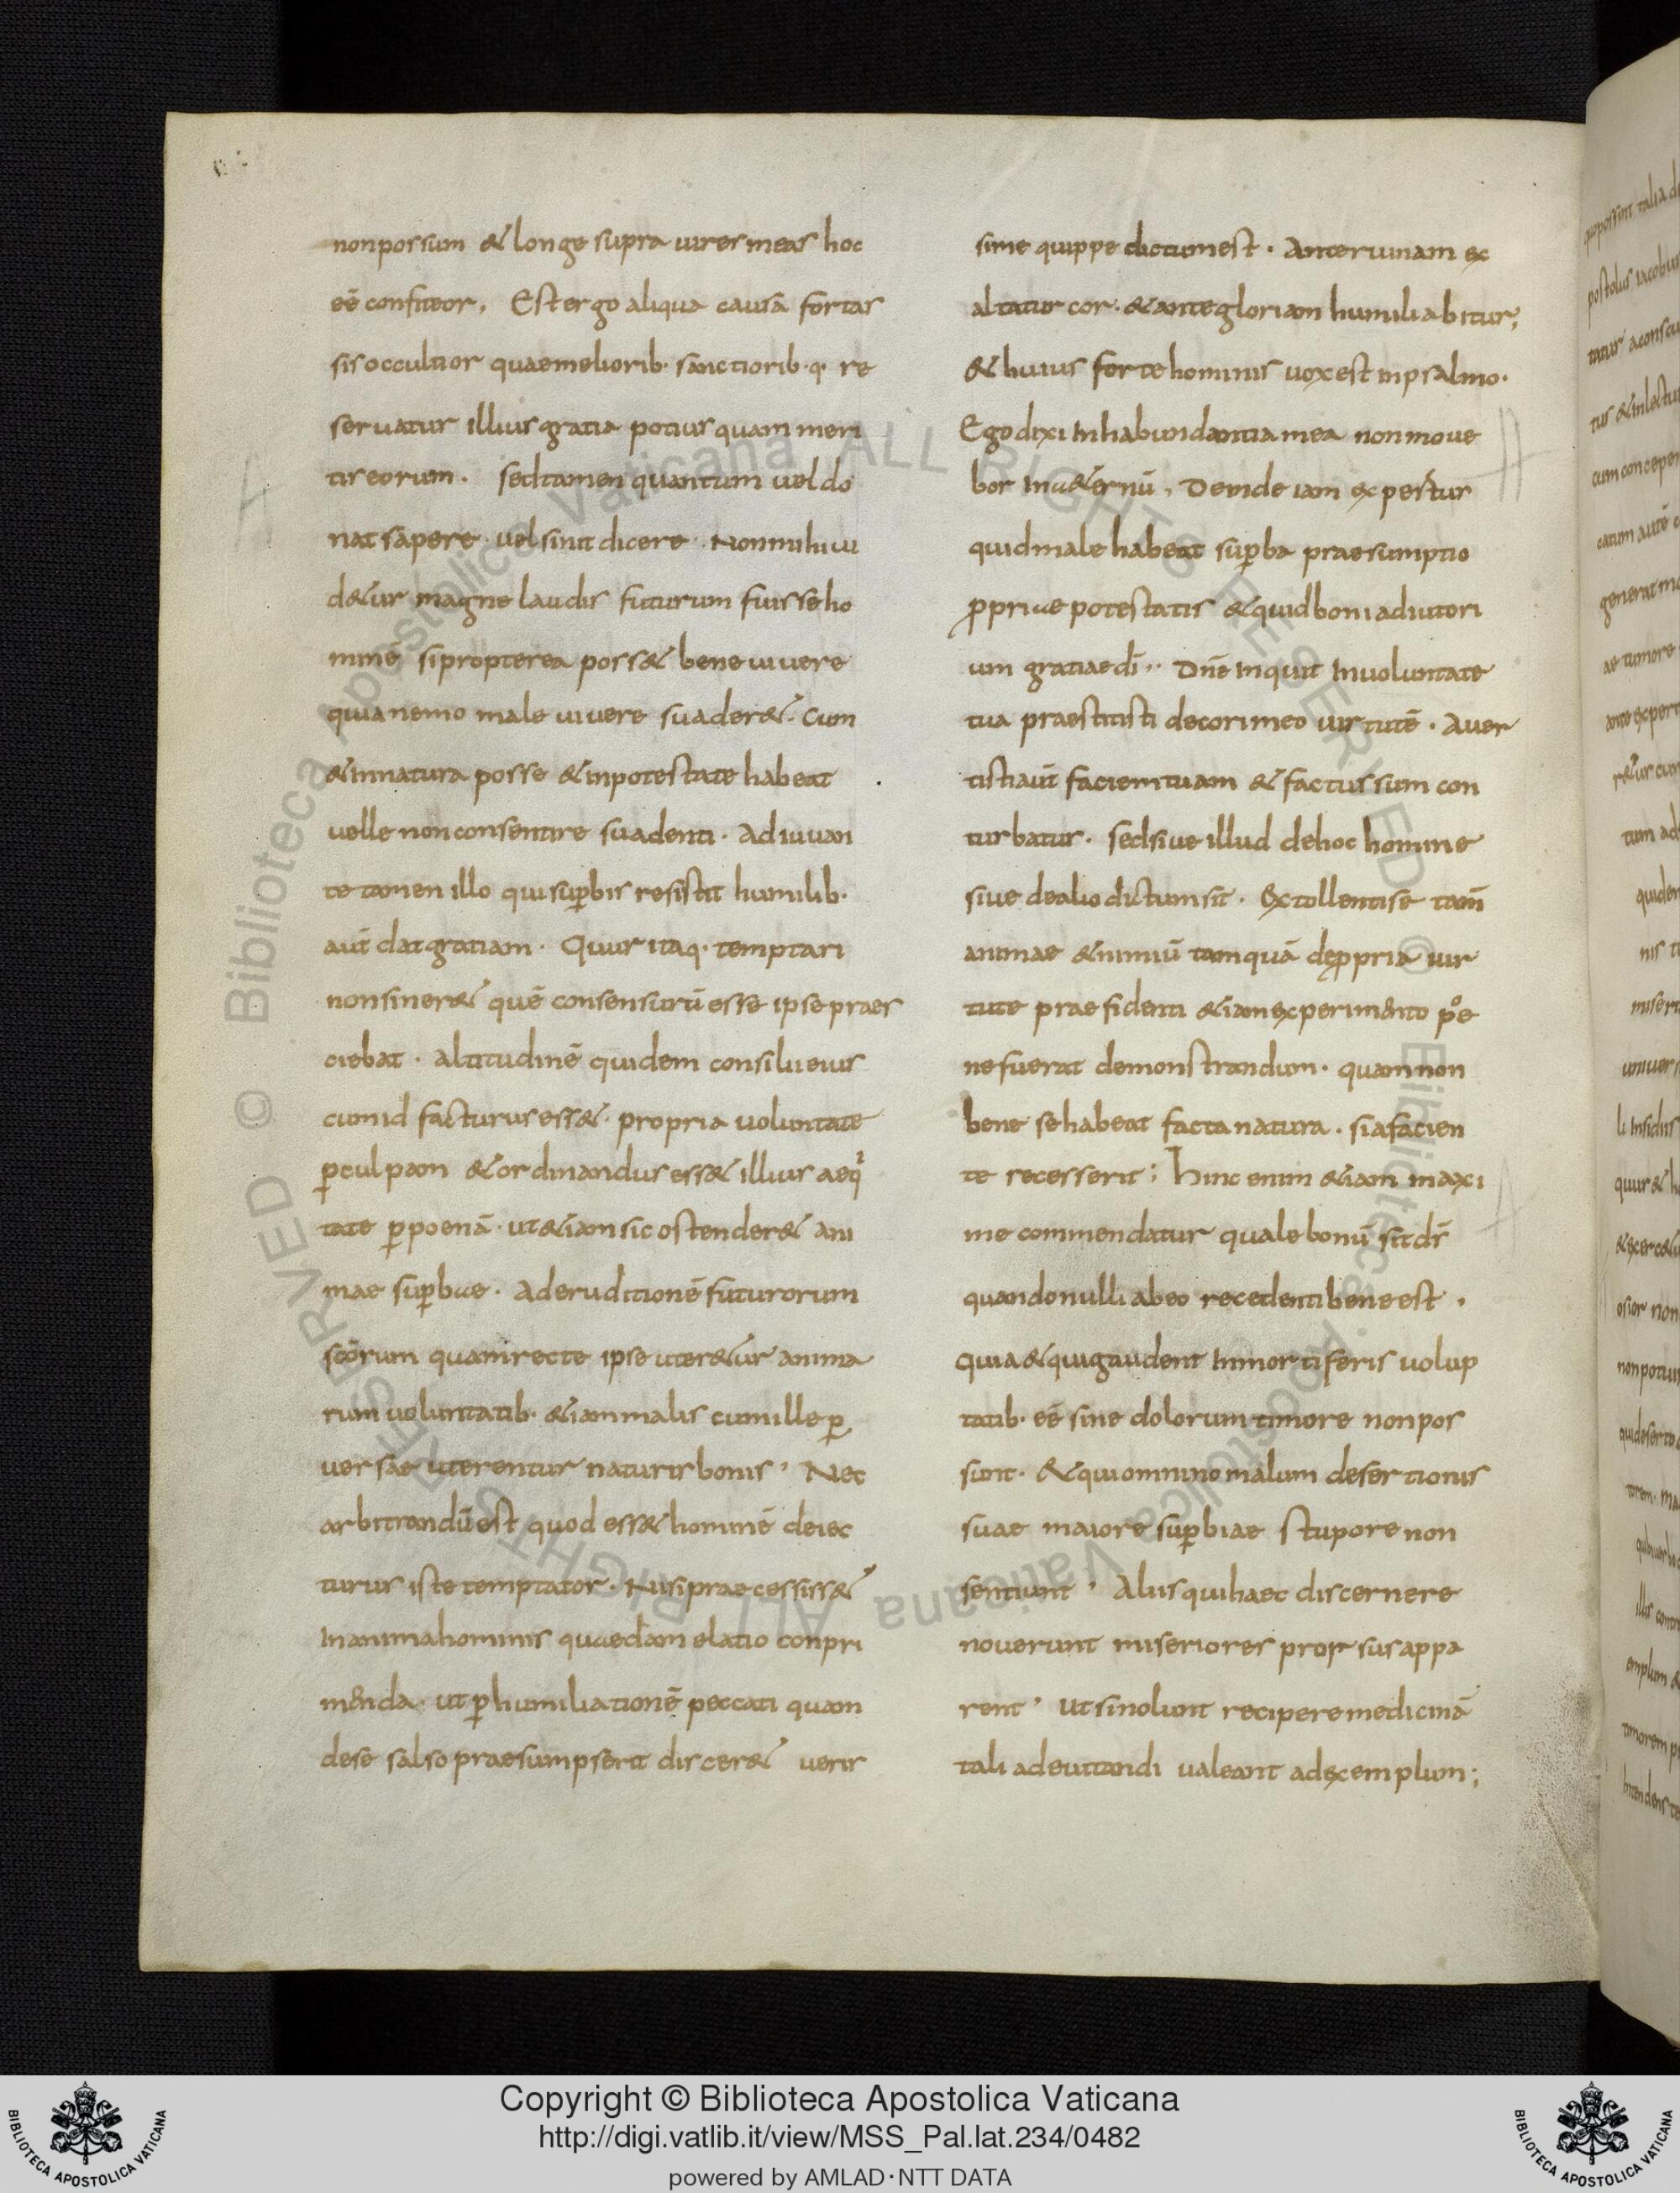 nonpossum & longe supra uires meas hoc
eē confiteor, Est ergo aliqua causā fortas
sis occultior quae meliorib· sanctiorib·q· re
seruatur illius gratia potius quam meri
tis eorum. sed tamen quantum uel do
nat sapere· uel sinit dicere· Non mihi ui
d&ur magne laudis futurum fuisse ho
minē si propterea poss& bene uiuere
quia nemo male uiuere suader&. Cum
& in natura posse & in potestate habeat
uelle non consentire suadenti· Adiuuan
te tamen illo qui sup̄bis resistit humilib·
aut̄ dat gratiam· Quur itaq· temptari
non siner& quē consensurū esse ipse praes
ciebat· altitudinē quidem consilii eius
cum id facturus ess&· propria uoluntate
p̱ culpam & ordinandus ess& illius aeqi
tate p̱ poenā· ut &iam sic ostender& ani
mae sup̱bae· Ad eruditionē futurorum
scōrum quam recte ipse uter&ur anima
rum uoluntatib· &iam malis cum ille p̱
uersae uterentur naturis bonis, Nec
arbitrandū est quod ess& hominē deiec
turus iste temptator· Nisi praecessiss&
In anima hominis quaedam elatio conpri
menda· ut p̱ humiliationē peccati quam
de se salso praesumpserit discer& ueris
sime quippe dictum est· Ante ruinam ex
altatur cor· & ante gloriam humiliabitur;
& huius forte hominis uox est in psalmo·
Ego dixi In habundantia mea non moue
bor In &ernū, Deinde iam expertus
quid male habeat sup̱ba praesumptio
ꝓpriae potestatis & quid boni adiutori
um gratiae dī·, Dn̄e Inquit In uoluntate
tua praestitisti decori meo uirtutē· Auer
tisti aut̄ faciem tuam & factus sum con
turbatus· sed siue illud de hoc homine
siue de alio dictum sit· Extollenti se tam̄
animae & nimiū tamquā de ꝓpria uir
tute praefidenti &iam experimento poe
ne fuerat demonstrandum· quam non
bene se habeat facta natura· si a facien
te recesserit; Hinc enim &iam maxi
me commendatur quale bonū sit dī
quando nulli ab eo recedenti bene est,
Quia & qui gaudent In mortiferis uolup
tatib· eē sine dolorum timore non pos
sunt· & qui omnino malum desertionis
suae maiore sup̱biae stupore non
sentiunt, Aliis qui haec discernere
nouerunt miseriores prorsus appa
rent, ut si nolunt recipere medicinā
tali ad euitandi ualeant ad exemplum;
Copyright © Biblioteca Apostolica Vaticana
http://digi.vatlib.it/view/MSS_Pal.lat.234/0482
powered by AMLAD·NTT DATA
BIBLIOTECA APOSTOLICA VATICANA
BIBLIOTECA APOSTOLICA VATICANA